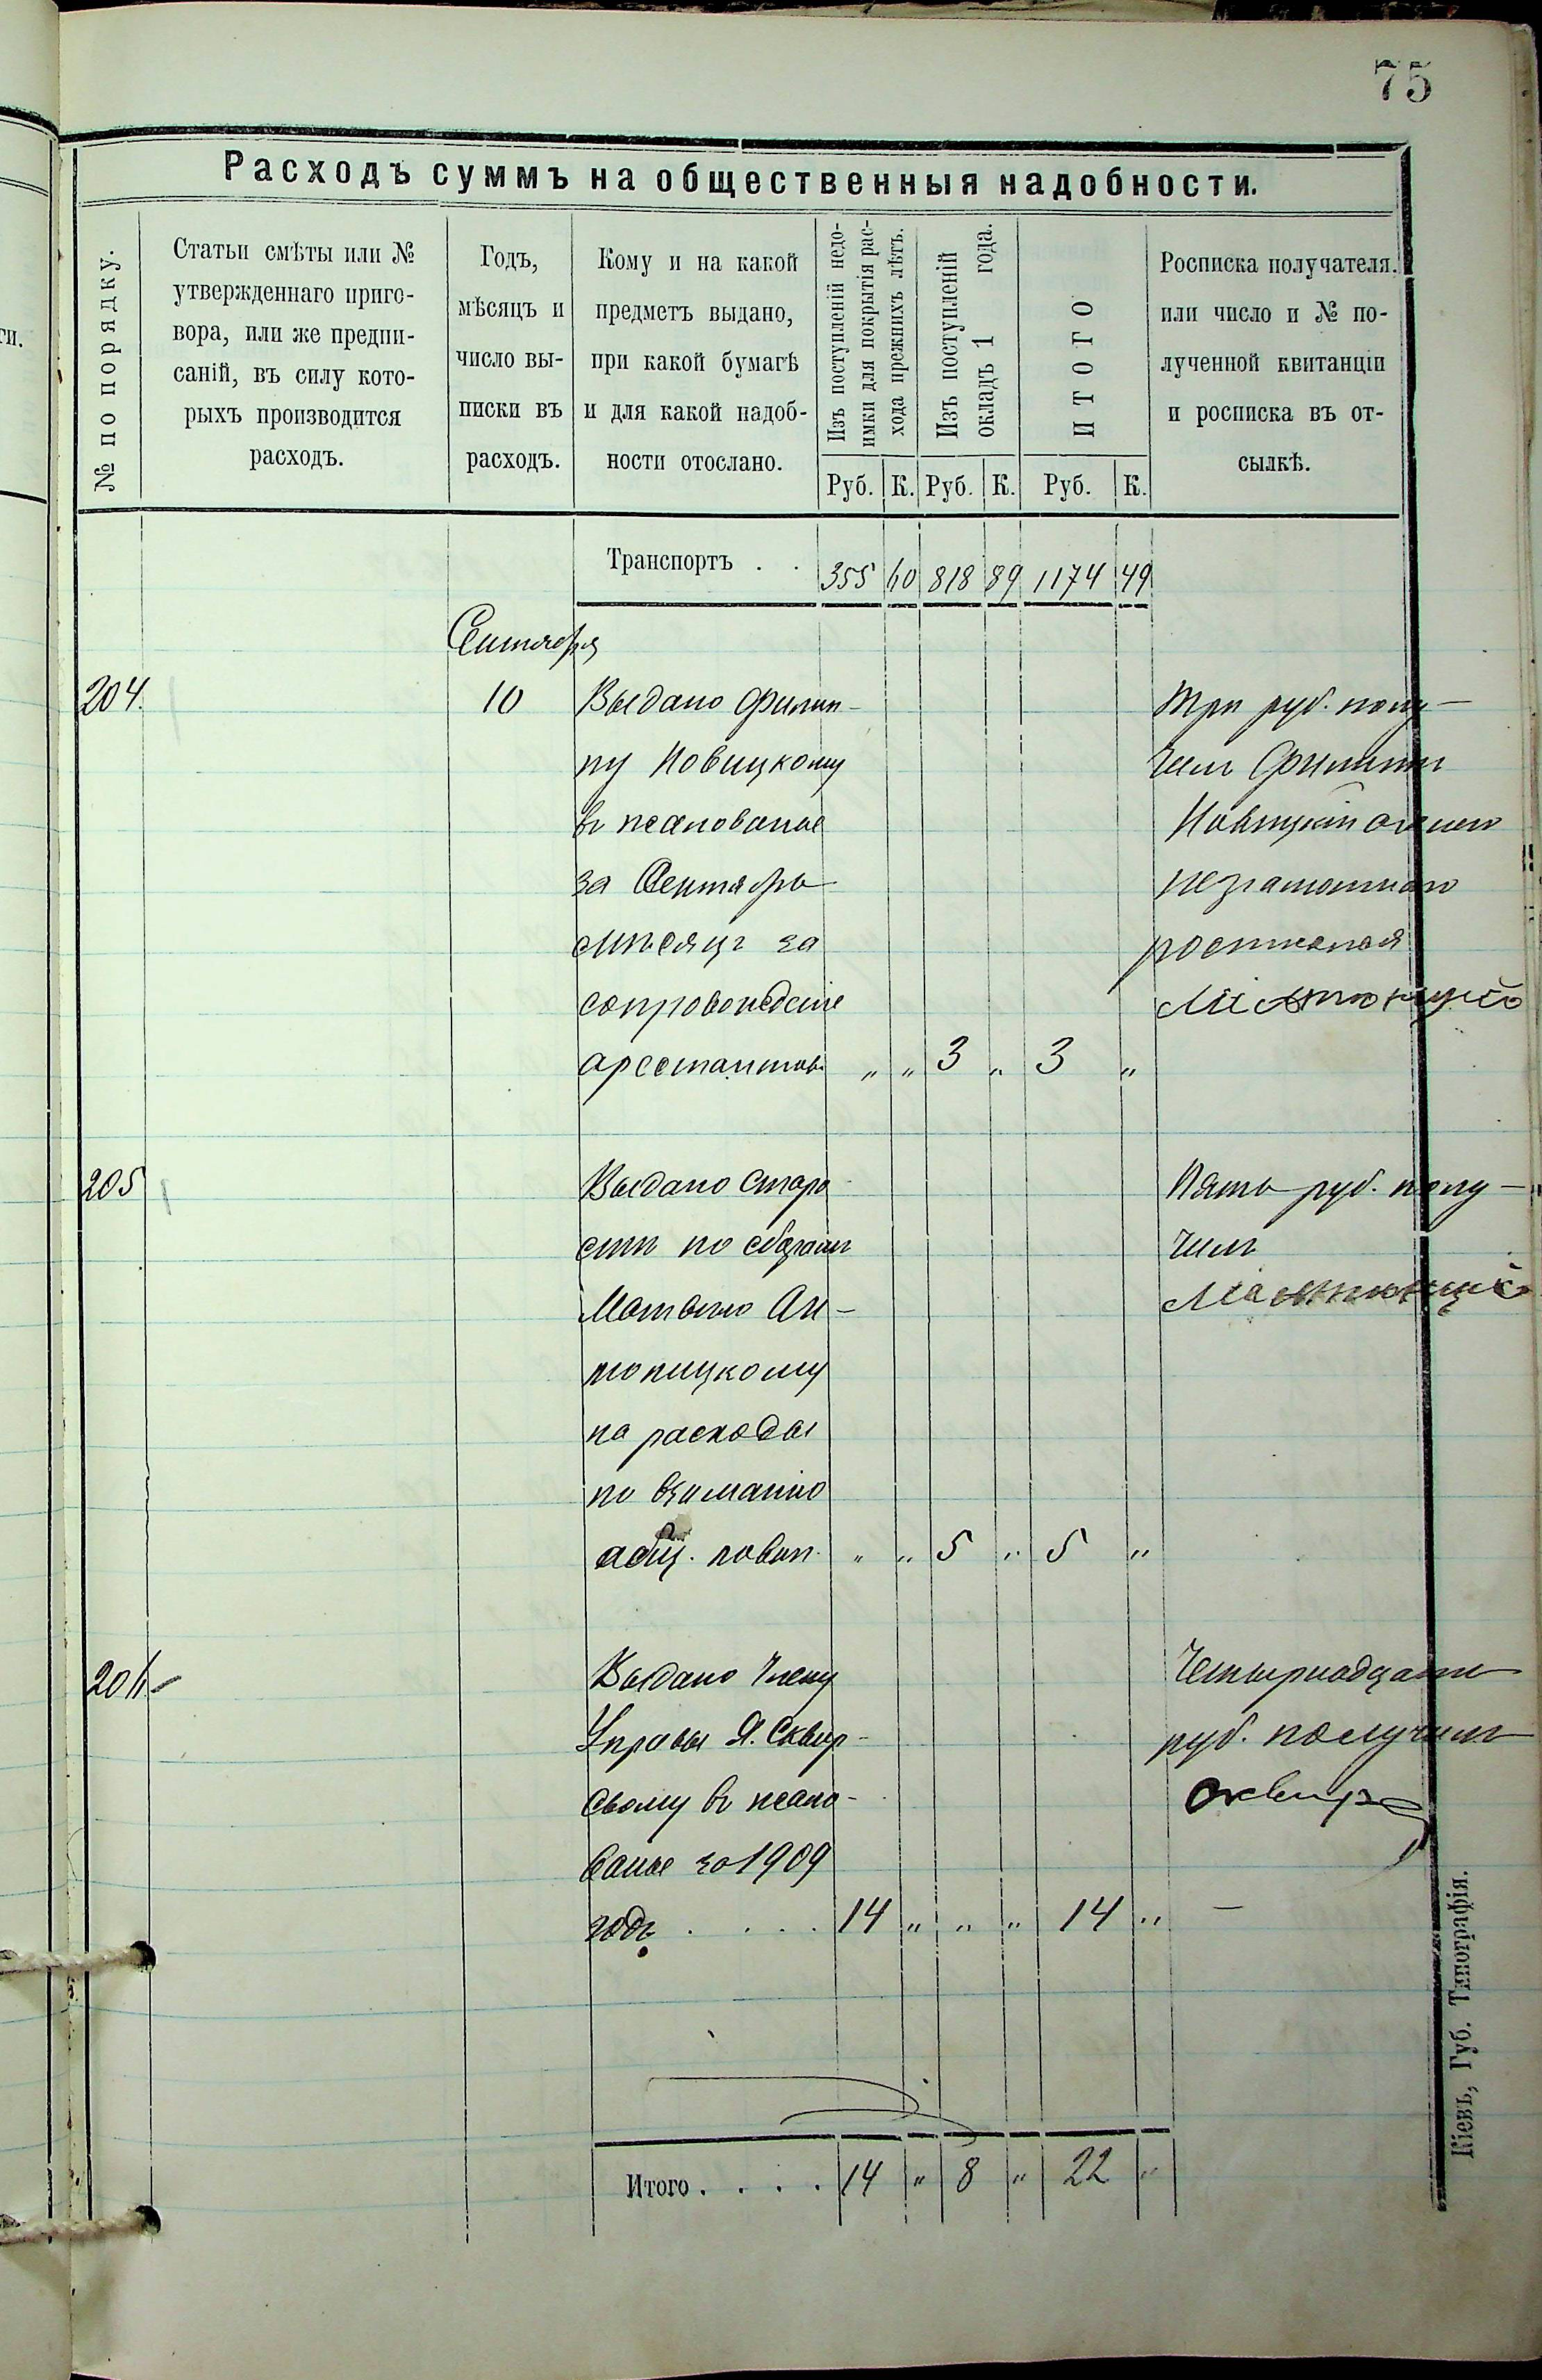 75
Расходъ суммъ на общественныя надобности.
№ по порядку.
Статьи смѣты или №
утвержденнаго приго-
вора, или же предпи-
саній, въ силу кото-
рыхъ производится
расходъ.
Годъ,
мѣсяцъ и
число вы-
писки въ
расходъ.
Кому и на какой
предметъ выдано,
при какой бумагѣ
и для какой надоб-
ности отослано.
Изъ поступленій недо-
имки для покрытія рас-
хода прежнихъ лѣтъ.
Изъ поступленій
окладъ 1 года.
ИТОГО
Росписка получателя.
или число и № по-
лученной квитанціи
и росписка въ от-
сылкѣ.
Руб. К. Руб. К. Руб. К.
Транспортъ . . 355 60 818 89 1174 49
Сентября
204. 10 Выдано Филип-
пу Новицкому
въ жалованье
за Сентябрь
мѣсяцъ за
сопровожденіе
арестантовъ „ „ 3 „ 3 „
Три руб. полу-
чилъ Филиппъ
Новицкій а за него
неграмотнаго
росписался
205 Выдано Старо
стѣ по сборамъ
Матвѣю Ан-
тоницкому
на расходы
по взиманію
общ. повин. „ „ 5 „ 5 „
Пять руб. полу-
чилъ
206 Выдано Члену
Управы Я. Сквир-
скому въ жало-
ванье за 1909
годъ . . . . . 14 „ „ „ 14 „
Четырнадцать
руб. получилъ
Итого . . . . 14 „ 8 „ 22 „
Кіевъ, Губ. Типографія.
ги.